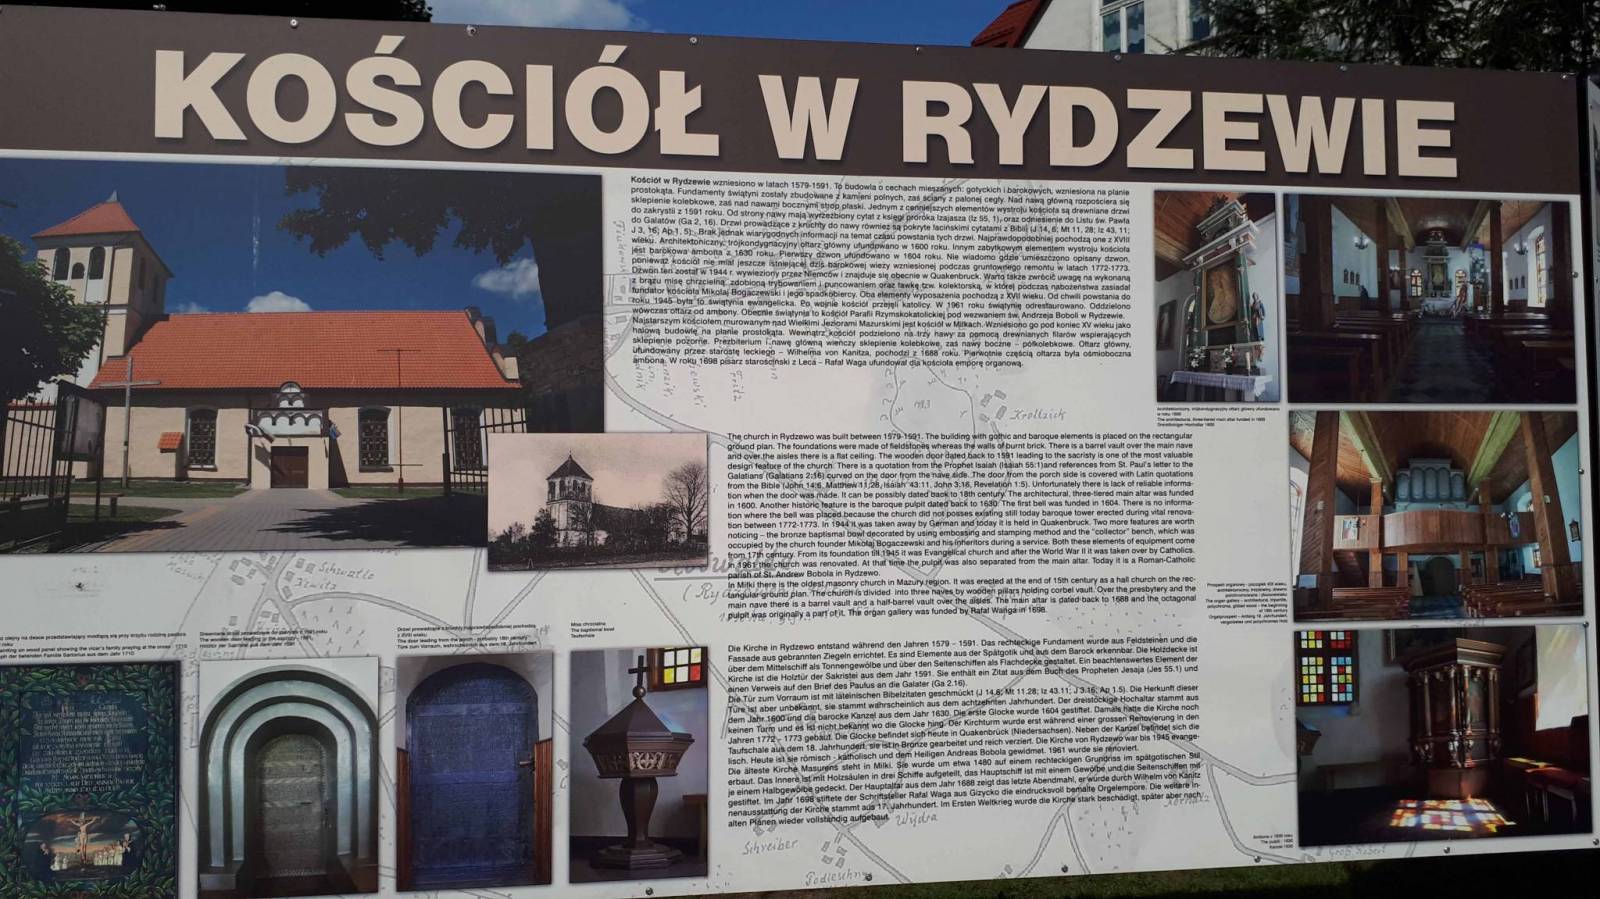 KOŚCIÓŁ W RYDZEWIE
Kościół w Rydzewie wzniesiono w latach 1579-1591. To budowla o cechach mieszanych: gotyckich i barokowych, wzniesiona na planie
prostokąta. Fundamenty świątyni zostały zbudowane z kamieni polnych, zaś ściany z palonej cegły. Nad nawą główną rozpościera się
sklepienie kolebkowe, zaś nad nawami bocznymi strop płaski. Jednym z cenniejszych elementów wystroju kościoła są drewniane drzwi
do zakrystii z 1591 roku. Od strony nawy mają wyrzeźbiony cytat z księgi proroka Izajasza (Iz 55, 1), oraz odniesienie do Listu św. Pawła
do Galatów (Ga 2, 16). Drzwi prowadzące z kruchty do nawy również są pokryte łacińskimi cytatami z Biblii (J 14, 6; Mt 11, 28; Iz 43, 11;
J 3, 16; Ap 1, 5). Brak jednak wiarygodnych informacji na temat czasu powstania tych drzwi. Najprawdopodobniej pochodzą one z XVIII
wieku. Architektoniczny, trójkondygnacyjny ołtarz główny ufundowano w 1600 roku. Innym zabytkowym elementem wystroju kościoła
jest barokowa ambona z 1630 roku. Pierwszy dzwon ufundowano w 1604 roku. Nie wiadomo gdzie umieszczono opisany dzwon,
ponieważ kościół nie miał jeszcze istniejącej dziś barokowej wieży wzniesionej podczas gruntownego remontu w latach 1772-1773.
Dzwon ten został w 1944 r. wywieziony przez Niemców i znajduje się obecnie w Quakenbruck. Warto także zwrócić uwagę na wykonaną
z brązu misę chrzcielną, zdobioną trybowaniem i puncowaniem oraz ławkę tzw. kolektorską, w której podczas nabożeństwa zasiadał
fundator kościoła Mikołaj Bogaczewski i jego spadkobiercy. Oba elementy wyposażenia pochodzą z XVII wieku. Od chwili powstania do
roku 1945 była to świątynia ewangelicka. Po wojnie kościół przejęli katolicy. W 1961 roku świątynię odrestaurowano. Oddzielono
wówczas ołtarz od ambony. Obecnie świątynia to kościół Parafii Rzymskokatolickiej pod wezwaniem św. Andrzeja Boboli w Rydzewie.
Najstarszym kościołem murowanym nad Wielkimi Jeziorami Mazurskimi jest kościół w Miłkach. Wzniesiono go pod koniec XV wieku jako
halową budowlę na planie prostokąta. Wewnątrz kościół podzielono na trzy nawy za pomocą drewnianych filarów wspierających
sklepienie pozorne. Prezbiterium i nawę główną wieńczy sklepienie kolebkowe, zaś nawy boczne – półkolebkowe. Ołtarz główny,
ufundowany przez starostę leckiego – Wilhelma von Kanitza, pochodzi z 1688 roku. Pierwotnie częścią ołtarza była ośmioboczna
ambona. W roku 1698 pisarz starościński z Leca – Rafał Waga ufundował dla kościoła emporę organową.
The church in Rydzewo was built between 1579-1591. The building with gothic and baroque elements is placed on the rectangular
ground plan. The foundations were made of fieldstones whereas the walls of burnt brick. There is a barrel vault over the main nave
and over the aisles there is a flat ceiling. The wooden door dated back to 1591 leading to the sacristy is one of the most valuable
design feature of the church. There is a quotation from the Prophet Isaiah (Isaiah 55:1)and references from St. Paul's letter to the
Galatians (Galatians 2:16) curved on the door from the nave side. The door from the porch side is covered with Latin quotations
from the Bible (John 14:6, Matthew 11:28, Isaiah 43:11, John 3:16, Revelation 1:5). Unfortunately there is lack of reliable informa-
tion when the door was made. It can be possibly dated back to 18th century. The architectural, three-tiered main altar was funded
in 1600. Another historic feature is the baroque pulpit dated back to 1630. The first bell was funded in 1604. There is no informa-
tion where the bell was placed because the church did not posses existing still today baroque tower erected during vital renova-
tion between 1772-1773. In 1944 it was taken away by German and today it is held in Quakenbruck. Two more features are worth
noticing – the bronze baptismal bowl decorated by using embossing and stamping method and the "collector" bench, which was
occupied by the church founder Mikołaj Bogaczewski and his inheritors during a service. Both these elements of equipment come
from 17th century. From its foundation till 1945 it was Evangelical church and after the World War II it was taken over by Catholics.
In 1961 the church was renovated. At that time the pulpit was also separated from the main altar. Today it is a Roman-Catholic
parish of St. Andrew Bobola in Rydzewo.
In Miłki there is the oldest masonry church in Mazury region. It was erected at the end of 15th century as a hall church on the rec-
tangular ground plan. The church is divided into three naves by wooden pillars holding corbel vault. Over the presbytery and the
main nave there is a barrel vault and a half-barrel vault over the aisles. The main altar is dated back to 1688 and the octagonal
pulpit was originally a part of it. The organ gallery was funded by Rafał Wanga in 1698.
Die Kirche in Rydzewo entstand während den Jahren 1579 – 1591. Das rechteckige Fundament wurde aus Feldsteinen und die
Fassade aus gebrannten Ziegeln errichtet. Es sind Elemente aus der Spätgotik und aus dem Barock erkennbar. Die Holzdecke ist
über dem Mittelschiff als Tonnengewölbe und über den Seitenschiffen als Flachdecke gestaltet. Ein beachtenswertes Element der
Kirche ist die Holztür der Sakristei aus dem Jahr 1591. Sie enthält ein Zitat aus dem Buch des Propheten Jesaja (Jes 55.1) und
einen Verweis auf den Brief des Paulus an die Galater (Ga 2.16).
Die Tür zum Vorraum ist mit lateinischen Bibelzitaten geschmückt (J 14.6; Mt 11.28; Iz 43.11; J 3.16; Ap 1.5). Die Herkunft dieser
Türe ist aber unbekannt, sie stammt wahrscheinlich aus dem achtzehnten Jahrhundert. Der dreistöckige Hochaltar stammt aus
dem Jahr 1600 und die barocke Kanzel aus dem Jahr 1630. Die erste Glocke wurde 1604 gestiftet. Damals hatte die Kirche noch
keinen Turm und es ist nicht bekannt wo die Glocke hing. Der Kirchturm wurde erst während einer grossen Renovierung in den
Jahren 1772 – 1773 gebaut. Die Glocke befindet sich heute in Quakenbrück (Niedersachsen). Neben der Kanzel befindet sich die
Taufschale aus dem 18. Jahrhundert, sie ist in Bronze gearbeitet und reich verziert. Die Kirche von Rydzewo war bis 1945 evange-
lisch. Heute ist sie römisch - katholisch und dem Heiligen Andreas Bobola gewidmet. 1961 wurde sie renoviert.
Die älteste Kirche Masurens steht in Miłki. Sie wurde um etwa 1480 auf einem rechteckigen Grundriss im spätgotischen Stil
erbaut. Das Innere ist mit Holzsäulen in drei Schiffe aufgeteilt, das Hauptschiff ist mit einem Gewölbe und die Seitenschiffen mit
je einem Halbgewölbe gedeckt. Der Hauptaltar aus dem Jahr 1688 zeigt das letzte Abendmahl, er wurde durch Wilhelm von Kanitz
gestiftet. Im Jahr 1698 stiftete der Schriftsteller Rafał Waga aus Giżycko die eindrucksvoll bemalte Orgelempore. Die weitere In-
nenausstattung der Kirche stammt aus 17. Jahrhundert. Im Ersten Weltkrieg wurde die Kirche stark beschädigt, später aber nach
alten Plänen wieder vollständig aufgebaut.
Architektoniczny, trójkondygnacyjny ołtarz główny ufundowano
w roku 1600
The architectural, three-tiered main altar funded in 1600
Dreistöckiger Hochaltar 1600
Drzwi prowadzące z kruchty najprawdopodobniej pochodzą
z XVIII wieku
The door leading from the porch - probably 18th century
Türe zum Vorraum, wahrscheinlich aus dem 18. Jahrhundert
Misa chrzcielna
The baptismal bowl
Taufschale
Drewniane drzwi prowadzące do zakrystii z 1591 roku
The wooden door leading to the sacristy - 1591
Holztür der Sakristei aus dem Jahr 1591
Ambona z 1630 roku
The pulpit - 1630
Kanzel 1630
Krollzick
Schwatte
Wydra
Schreiber